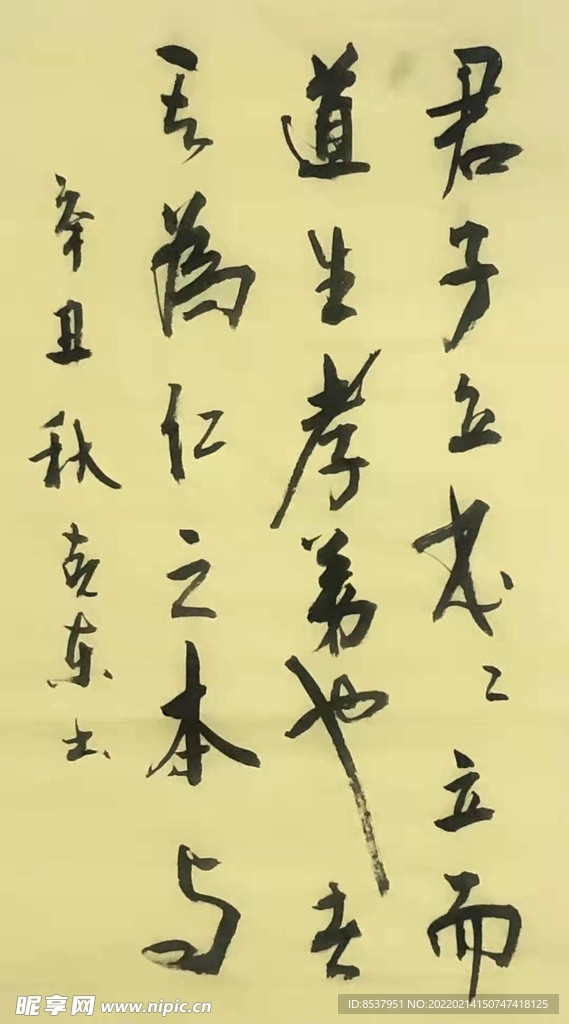 君子本〻立而
道生孝弟也者
其為仁之本与
辛丑秋克东书
昵享网 www.nipic.cn
ID:8537951 NO:20220214150747418125